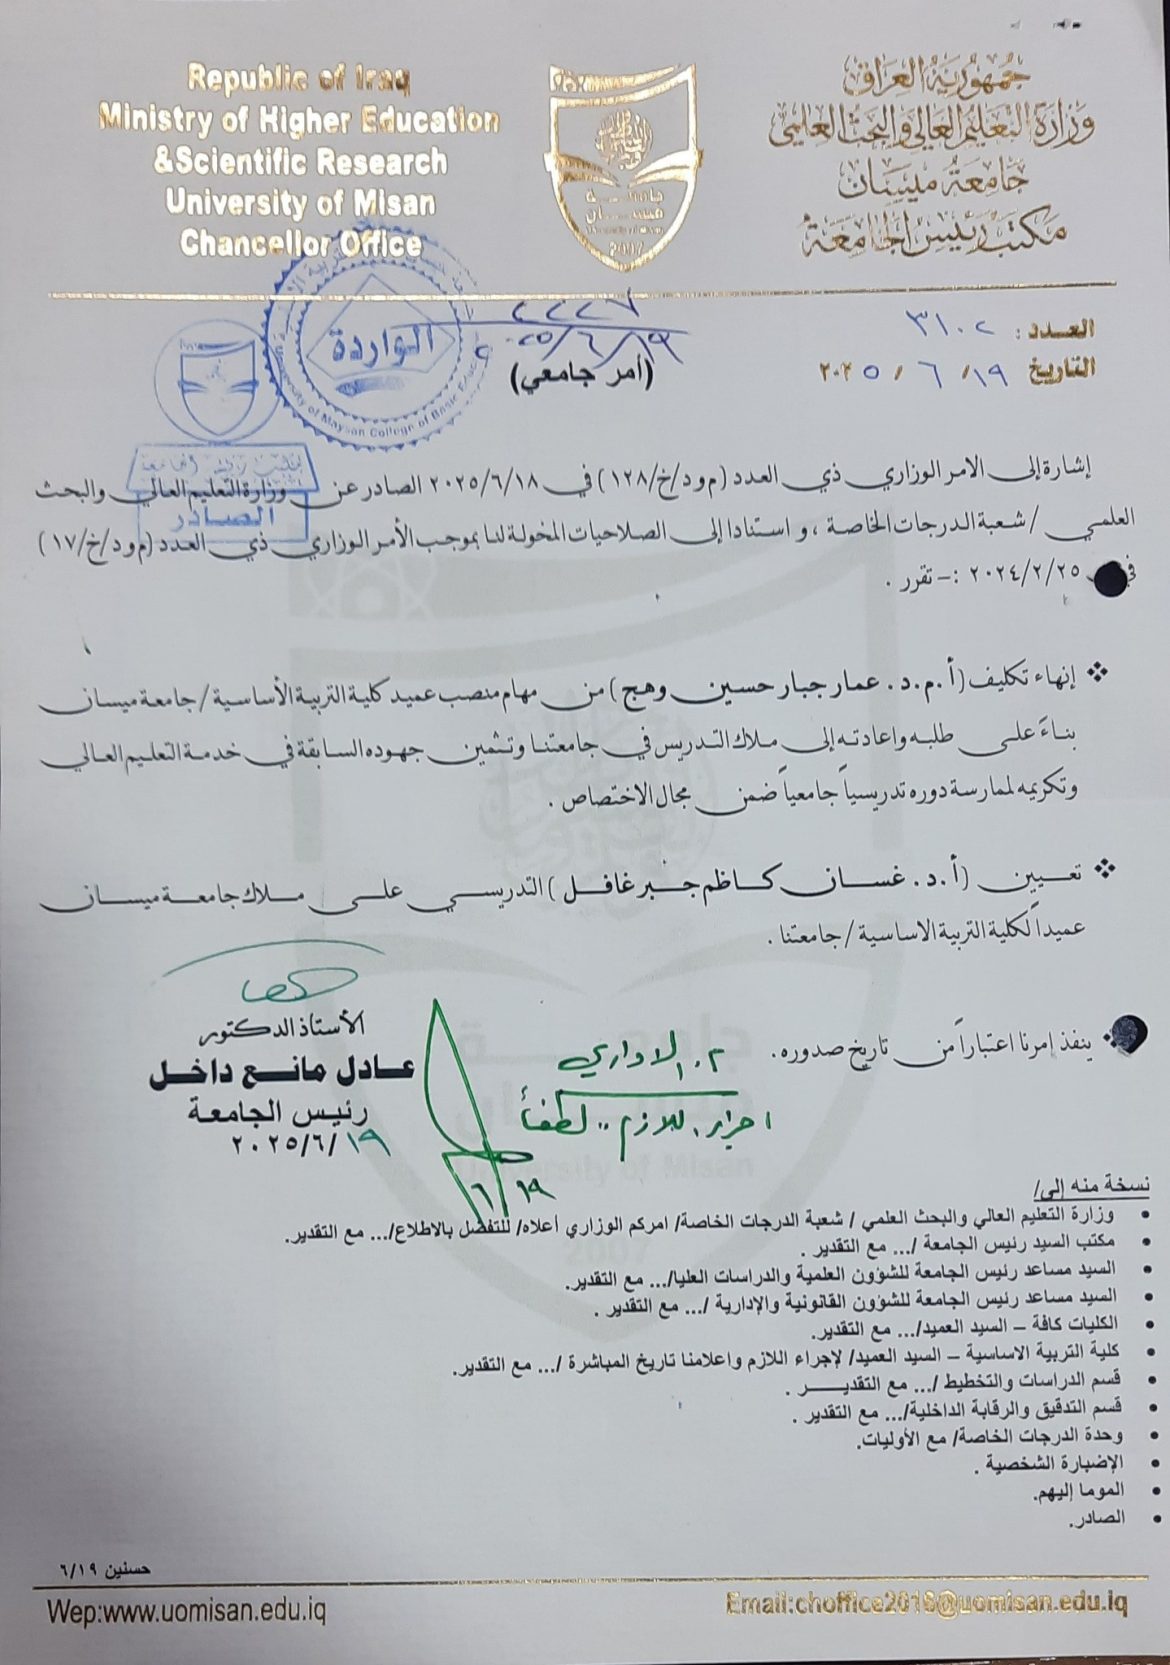 Republic of Iraq
Ministry of Higher Education
&Scientific Research
University of Misan
Chancellor Office
جمهورية العراق
وزارة التعليم العالي والبحث العلمي
جامعة ميسان
مكتب رئيس الجامعة
جامعة
ميسان
University of Misan
2007
العدد : ٣١٠٢
التاريخ ١٩ / ٦ / ٢٠٢٥
٢٢٢٧
٢٠٢٥/٦/١٩
الواردة
University of Maysan College of Basic Education
(أمر جامعي)
مكتب رئيس الجامعة
الصادر
إشارة إلى الامر الوزاري ذي العدد (م و د/خ/١٢٨) في ٢٠٢٥/٦/١٨ الصادر عن وزارة التعليم العالي والبحث
العلمي / شعبة الدرجات الخاصة ، و استنادا إلى الصلاحيات المخولة لنا بموجب الأمر الوزاري ذي العدد (م و د/خ/١٧)
في ٢٠٢٤/٢/٢٥ :- تقرر .
❖ إنهاء تكليف (أ.م.د. عمار جبار حسين وهج) من مهام منصب عميد كلية التربية الأساسية / جامعة ميسان
بناءً على طلبه واعادته إلى ملاك التدريس في جامعتنا وتثمين جهوده السابقة في خدمة التعليم العالي
وتكريمه لممارسة دوره تدريسياً جامعياً ضمن مجال الاختصاص .
❖ تعيين (أ.د. غسان كاظم جبر غافل) التدريسي على ملاك جامعة ميسان
عميداً لكلية التربية الاساسية / جامعتنا .
ينفذ امرنا اعتباراً من تاريخ صدوره.
الأستاذ الدكتور
عادل مانع داخل
رئيس الجامعة
٢٠٢٥/٦/١٩
م. الاداري
اجراء اللازم .. لطفاً
٦/١٩
نسخة منه إلى/
• وزارة التعليم العالي والبحث العلمي / شعبة الدرجات الخاصة/ امركم الوزاري أعلاه/ للتفضل بالاطلاع/... مع التقدير.
• مكتب السيد رئيس الجامعة /... مع التقدير .
• السيد مساعد رئيس الجامعة للشؤون العلمية والدراسات العليا/... مع التقدير.
• السيد مساعد رئيس الجامعة للشؤون القانونية والإدارية /... مع التقدير .
• الكليات كافة – السيد العميد/... مع التقدير.
• كلية التربية الاساسية – السيد العميد/ لإجراء اللازم واعلامنا تاريخ المباشرة /... مع التقدير.
• قسم الدراسات والتخطيط /... مع التقديــــر .
• قسم التدقيق والرقابة الداخلية/... مع التقدير .
• وحدة الدرجات الخاصة/ مع الأوليات.
• الإضبارة الشخصية .
• الموما إليهم.
• الصادر.
حسنين ٦/١٩
Wep:www.uomisan.edu.iq
Email:choffice2016@uomisan.edu.iq